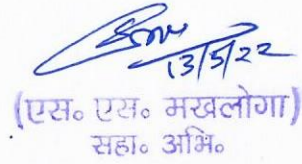 13/5/22
(एस० एस० मखलोगा)
सहा० अभि०